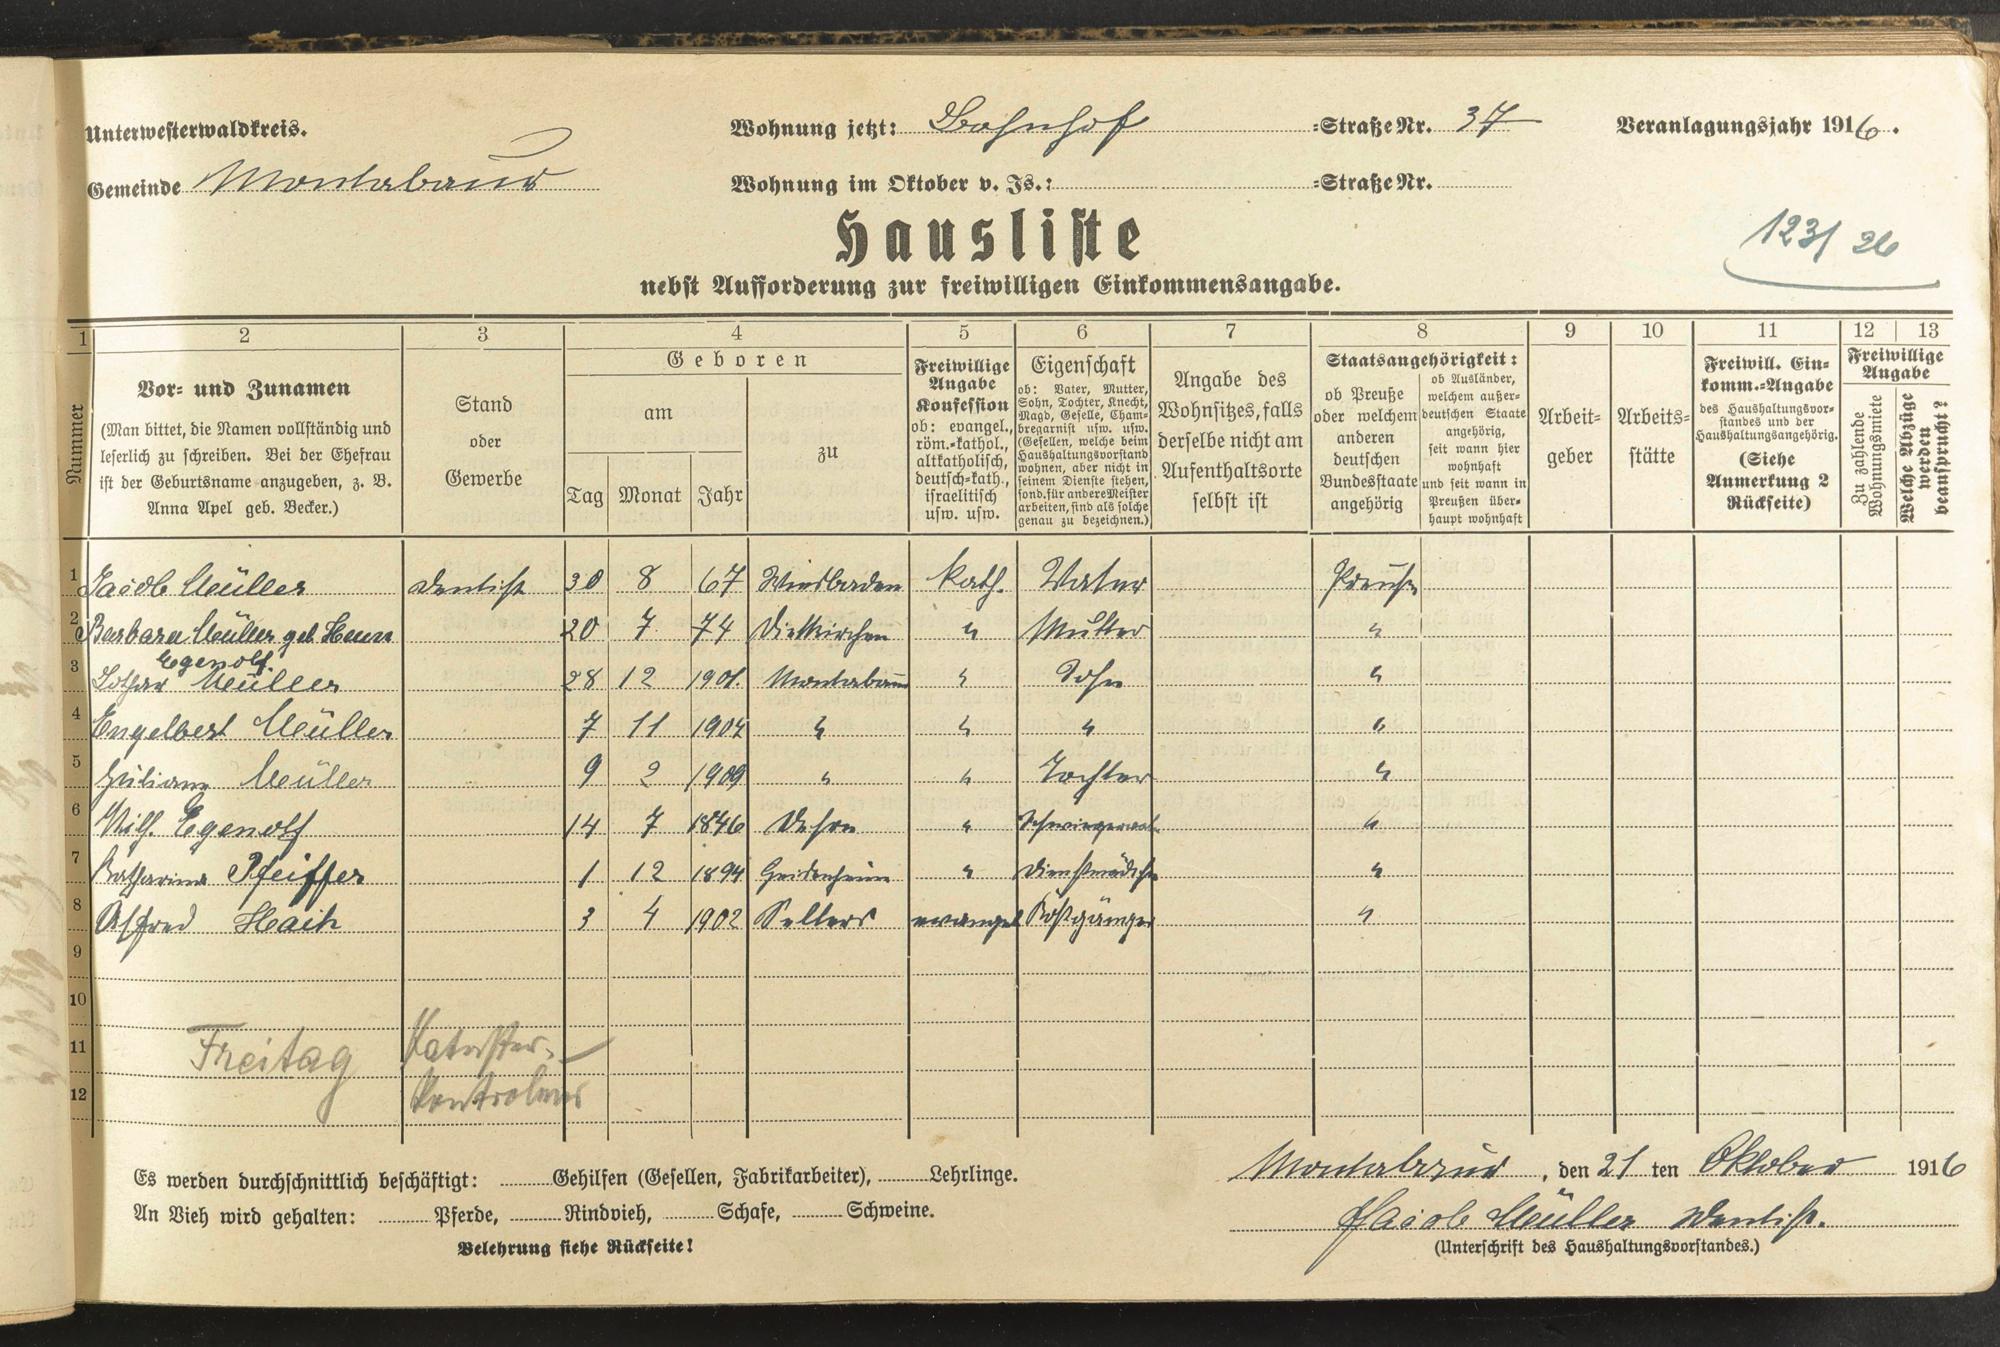 Unterwesterwaldkreis.
Gemeinde Montabaur
Wohnung jetzt: Bahnhof =Straße Nr. 37
Wohnung im Oktober v. Js.: =Straße Nr.
Veranlagungsjahr 1916.
Hausliste
123/26
nebst Aufforderung zur freiwilligen Einkommensangabe.
1 2 3 4 5 6 7 8 9 10 11 12 13
Nummer
Vor- und Zunamen
(Man bittet, die Namen vollständig und
leserlich zu schreiben. Bei der Ehefrau
ist der Geburtsname anzugeben, z. B.
Anna Apel geb. Becker.)
Stand
oder
Gewerbe
Geboren
am
zu
Tag Monat Jahr
Freiwillige
Angabe
Konfession
ob: evangel.,
röm.-kathol.,
altkatholisch,
deutsch-kath.,
israelitisch
usw. usw.
Eigenschaft
ob: Vater, Mutter,
Sohn, Tochter, Knecht,
Magd, Geselle, Cham-
bregarnist usw. usw.
(Gesellen, welche beim
Haushaltungsvorstand
wohnen, aber nicht in
seinem Dienste stehen,
sond. für andere Meister
arbeiten, sind als solche
genau zu bezeichnen.)
Angabe des
Wohnsitzes, falls
derselbe nicht am
Aufenthaltsorte
selbst ist
Staatsangehörigkeit:
ob Preuße
oder welchem
anderen
deutschen
Bundesstaate
angehörig
ob Ausländer,
welchem außer-
deutschen Staate
angehörig,
seit wann hier
wohnhaft
und seit wann in
Preußen über-
haupt wohnhaft
Arbeit-
geber
Arbeits-
stätte
Freiwill. Ein-
komm.-Angabe
des Haushaltungsvor-
standes und der
Haushaltungsangehörig.
(Siehe
Anmerkung 2
Rückseite)
Freiwillige
Angabe
Zu zahlende
Wohnungsmiete
Welche Abzüge
werden
beansprucht?
1 Jacob Müller Dentist 30 8 67 Wiesbaden kath. Vater Preuße
2 Barbara Müller geb. 20 7 74 Dietkirchen " Mutter "
Egenolf
3 Lothar Müller 28 12 1901. Montabaur " Sohn "
4 Engelbert Müller 7 11 1904 " " " "
5 Juliane Müller 9 2 1909 " " Tochter "
6 Wilh. Egenolf 14 7 1846 Dehrn " Schwiegervat. "
7 Katharina Pfeiffer 1 12 1894 " Dienstmädchen "
8 Alfred 3 4 1902 Selters evangel Kostgänger "
9
10
11 Freitag Kataster-
12 Kontroleur
Es werden durchschnittlich beschäftigt: Gehilfen (Gesellen, Fabrikarbeiter), Lehrlinge.
An Vieh wird gehalten: Pferde, Rindvieh, Schafe, Schweine.
Belehrung siehe Rückseite!
Montabaur, den 21 ten Oktober 1916
Jacob Müller Dentist.
(Unterschrift des Haushaltungsvorstandes.)